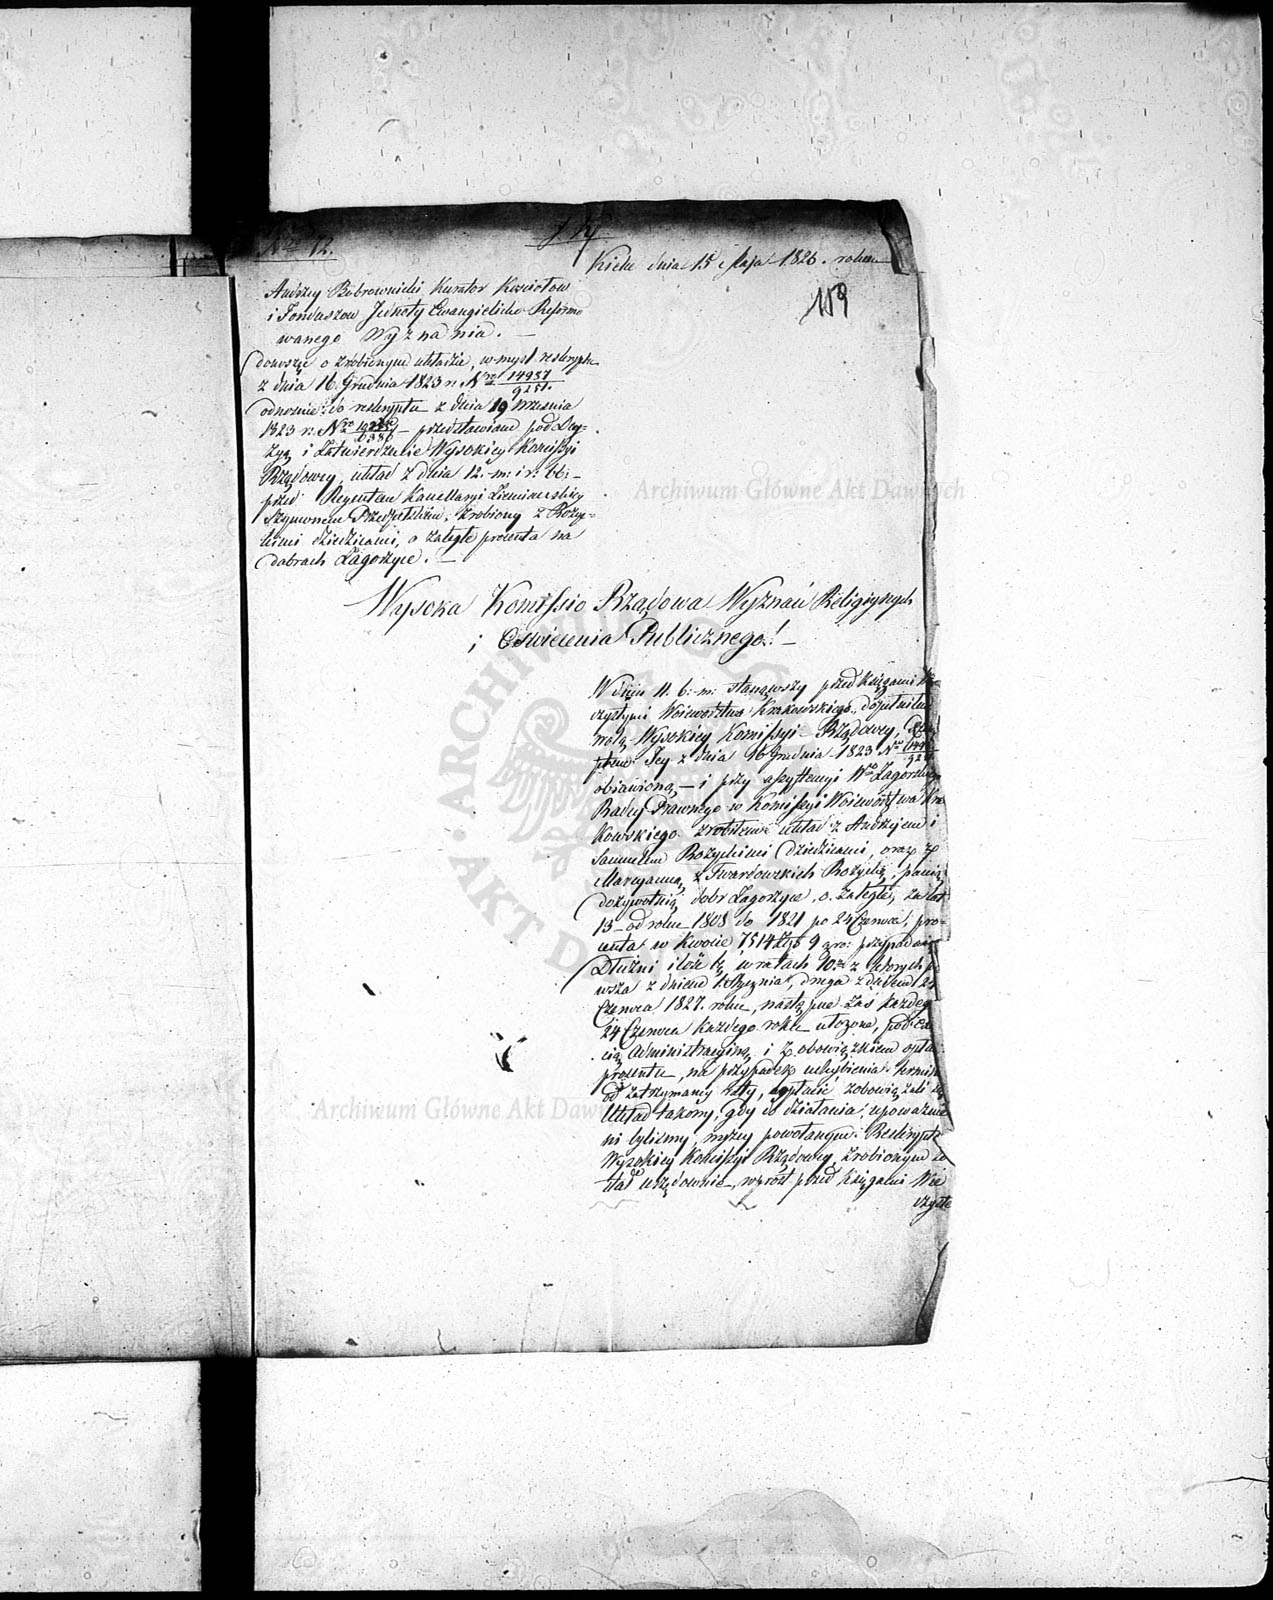 Nro 12.
Kielce dnia 15 Maja 1826. roku
159
Andrzey Bobrownicki Kurator Kosciołow
i Funduszow Jednoty Ewangielicko Reformo
wanego Wyznania. —
donoszę o zrobionym układzie, w mysl reskryptu
z dnia 16 Grudnia 1823 r. Nro 14937/9251.
odnośnie do reskryptu z dnia 19 Wrzesnia
1823 r. Nro — przedstawiam pod Decy-
zyą i Zatwierdzenie Wysokiey Komissyi
Rządowey, układ z dnia 12. m: i r: bb: —
przed Regentem Kancellaryi Ziemianskiey
Szymonem zrobiony z Rożyc-
kiemi dziedzicami, o zaległe procenta na
dobrach Łagorzyce. —
Wysoka Komissio Rządowa Wyznań Religiynych
i Oswiecenia Publicznego! —
W dniu 11. b: m: stanąwszy przed Księgami Wie
czystymi Woiewodztwa Krakowskiego, dopełniłem
wolą Wysokiey Komissyi Rządowey,
Jey z dnia 16 Grudnia 1823 Nro
obiawioną, — i przy assystencyi Wo Zagorskiego
Radcy Prawnego w Komissyi Woiewodztwa Kra
kowskiego zrobiłem układ z Andrzejem i
Samuelem Rożyckiemi dziedzicami, oraz z
Maryanną z Twardowskich Rożycką, panią
dożywotnią dobr Łagorzyce, o zaległe, za lat
13 — od roku 1808 do 1821 po 24 Czerwca, pro-
centa w kwocie 7514 Złp 9 gro: przypadaią
Dłużni ilość tę w ratach 10. z ktorych pier
wsza z dniem 1 Stycznia, druga z dniem 24
Czerwca 1827. roku, następne zaś każdego
24 Czerwca każdego roku ułożone, pod exe
cią administracyiną i z obowiązkiem opła
procentu, na przypadek uchybienia termin
od zatrzymaney raty, zapłacić zobowiązali się
Układ takowy, gdy do działania, upoważnie
ni byliśmy, mocą powołanym Reskryptem
Wysokiey Komissyi Rządowey, zrobionym zo
stał urzędownie, wprost przed Księgami Wie
czyste
Archiwum Główne Akt Dawnych
Archiwum Główne Akt Dawnych